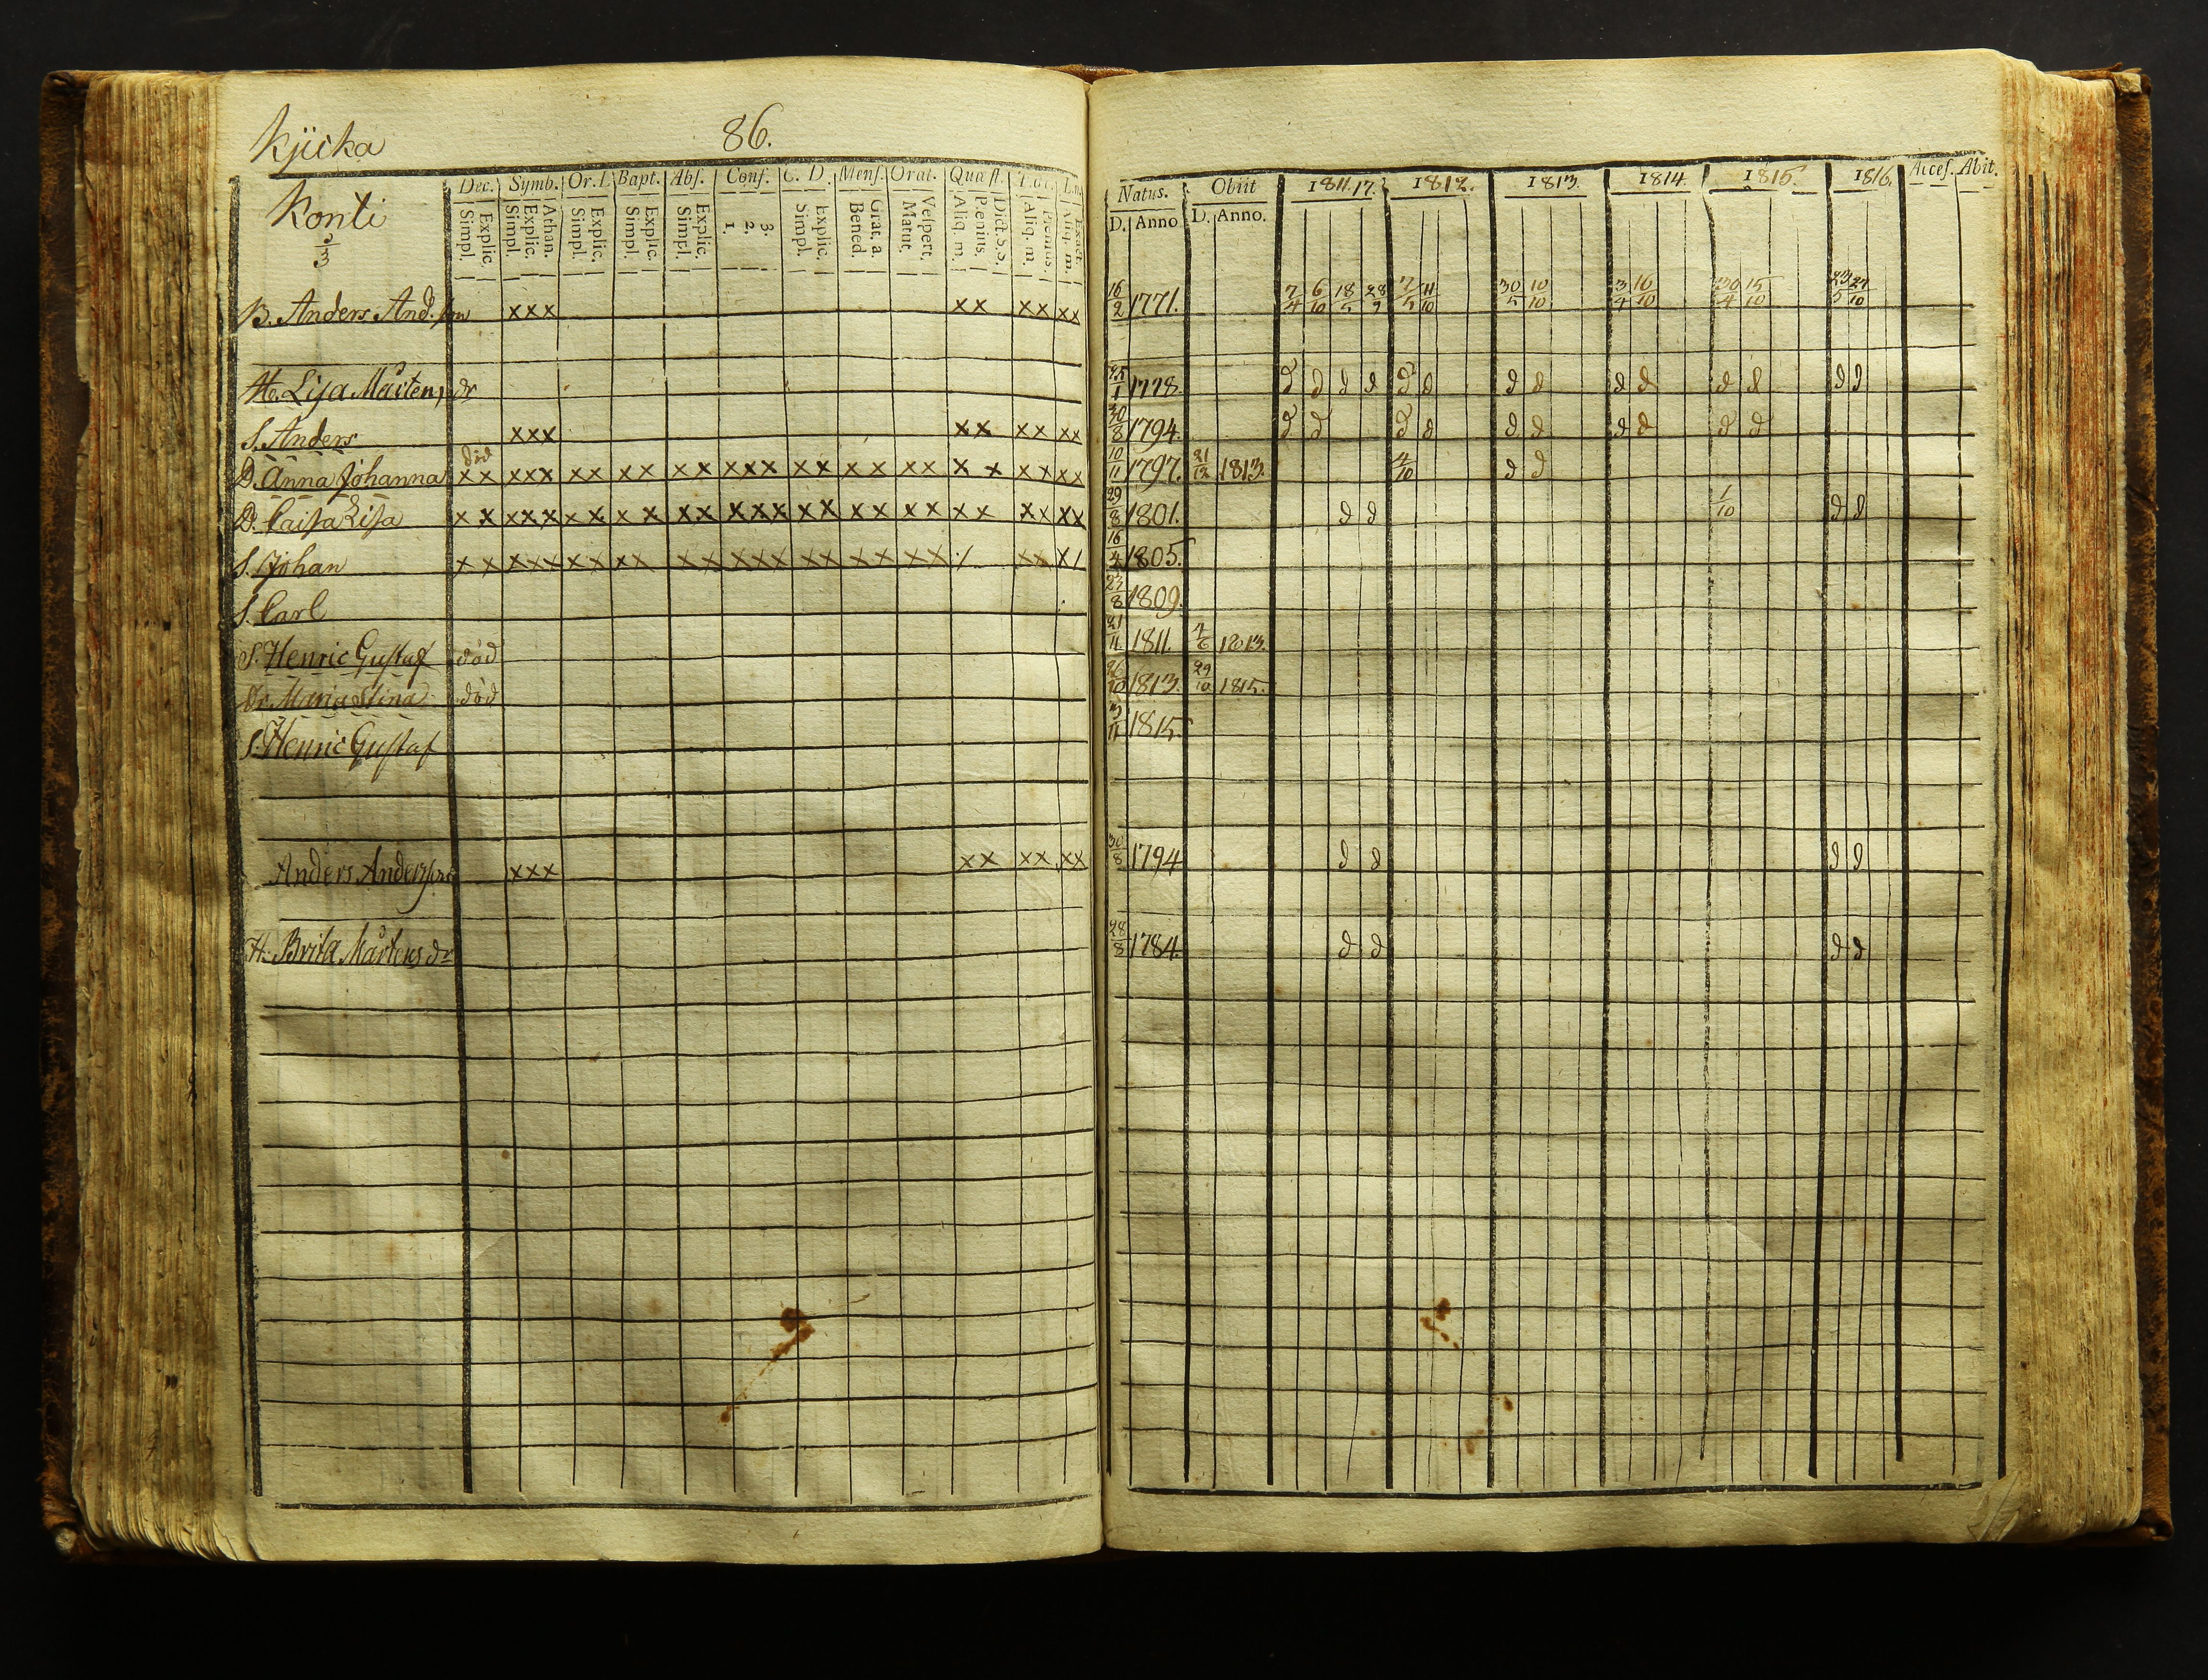 Kjicka 86.
Konti
2/3
Dec. Symb. Or. Bapt. Abſ. Conf. C. D. Menſ. Orat. Quæſt.
Simpl. Explic. Simpl. Explic. Athan. Simpl. Explic. Simpl. Explic. Simpl. Explic. 1. 2. 3. Simpl. Explic. Bened. Grat. a. Matut. Veſpert. Aliq. m. Plenius. Dict. S. S. Aliq. m. Plenius. Aliq. m. Exact.
Natus. Obiit 1811.17. 1812. 1813. 1814. 1815. 1816. Acceſ. Abit.
D. Anno D. Anno.
B. Anders And.ſon xxx xx xx xx 16/2 1771. 7/4 6/10 18/5 28/9 7/5 11/10 30/5 10/10 3/4 16/10 30/4 15/10 23/5 27/10
H. Liſa Mårtensdr 25/1 1778. d d d d d d d d d d d d d d
S. Anders xxx xx xx xx 30/8 1794. d d d d d d d d d d
död
D. Anna Johanna xx xxx xx xx xx xxx xx xx xx xx xx xx 10/11 1797. 21/12 1813. 4/10 d d
D. Caiſa Liſa xx xxx xx xx xx xxx xx xx xx xx xx xx 29/8 1801. d d 1/10 d d
S. Johan xx xxx xx xx xx xxx xx xx xx / xx x/ 16/4 1805.
S. Carl 23/8 1809.
S. Henric Guſtaf död 21/11 1811. 4/6 1813.
Dr. Maria Stina död 26/10 1813. 29/10 1815.
S. Henric Guſtaf 3/11 1815.
Anders Andersſon xxx xx xx xx 30/8 1794 d d d d
H. Brita Mårtens dr 28/8 1784. d d d d